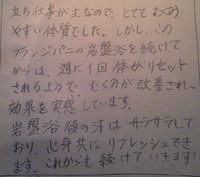 立ち仕事が主なので、とてもむくみ
やすい体質でした。しかし、この
フランジパニの岩盤浴を続けて
からは、週に1回体がリセット
されるようで、むくみが改善され、
効果を実感しています。
岩盤浴後の汗はサラサラして
おり、心身共にリフレッシュでき
ます。これからも続けていきます!